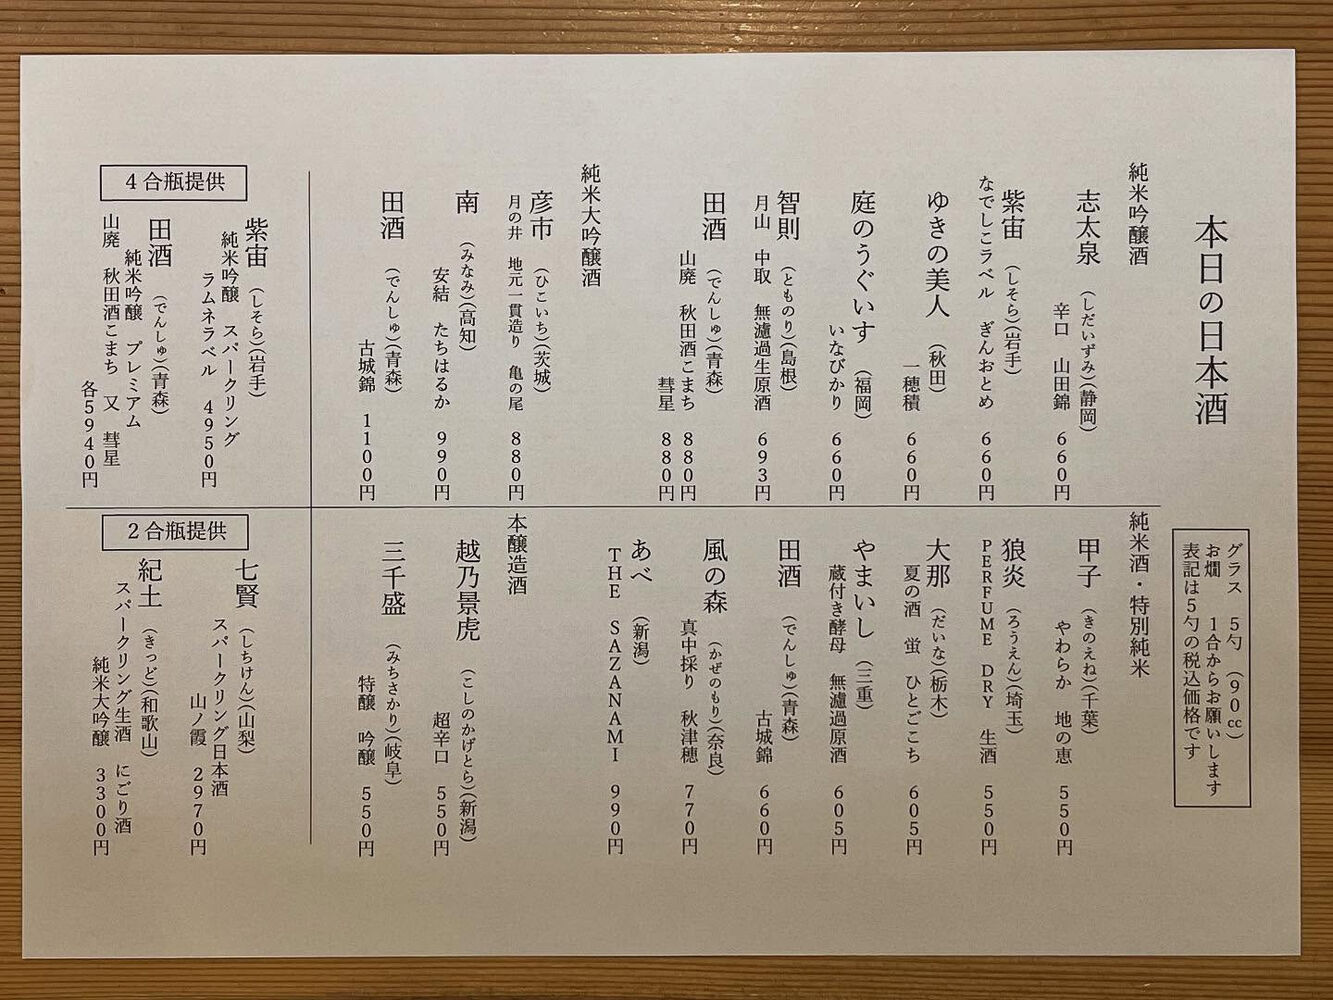 本日の日本酒
グラス 5勺 (90㏄)
お燗 1合からお願いします
表記は5勺の税込価格です
純米吟醸酒
志太泉 (しだいずみ)(静岡)
辛口 山田錦 660円
紫宙 (しそら)(岩手)
なでしこラベル ぎんおとめ 660円
ゆきの美人 (秋田)
一穂積 660円
庭のうぐいす (福岡)
いなびかり 660円
智則 (とものり)(島根)
月山 中取 無濾過生原酒 693円
田酒 (でんしゅ)(青森)
山廃 秋田酒こまち 880円
彗星 880円
純米大吟醸酒
彦市 (ひこいち)(茨城)
月の井 地元一貫造り 亀の尾 880円
南 (みなみ)(高知)
安結 たちはるか 990円
田酒 (でんしゅ)(青森)
古城錦 1100円
純米酒・特別純米
甲子 (きのえね)(千葉)
やわらか 地の恵 550円
狼炎 (ろうえん)(埼玉)
PERFUME DRY 生酒 550円
大那 (だいな)(栃木)
夏の酒 蛍 ひとごこち 605円
やまいし (三重)
蔵付き酵母 無濾過原酒 605円
田酒 (でんしゅ)(青森)
古城錦 660円
風の森 (かぜのもり)(奈良)
真中採り 秋津穂 770円
あべ (新潟)
THE SAZANAMI 990円
本醸造酒
越乃景虎 (こしのかげとら)(新潟)
超辛口 550円
三千盛 (みちさかり)(岐阜)
特醸 吟醸 550円
4合瓶提供
紫宙 (しそら)(岩手)
純米吟醸 スパークリング
ラムネラベル 4950円
田酒 (でんしゅ)(青森)
純米吟醸 プレミアム
山廃 秋田酒こまち 又 彗星
各5940円
2合瓶提供
七賢 (しちけん)(山梨)
スパークリング日本酒
山ノ霞 2970円
紀土 (きっど)(和歌山)
スパークリング生酒 にごり酒
純米大吟醸 3300円